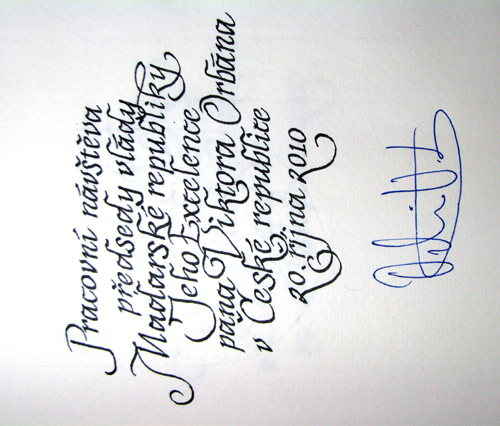 Pracovní návštěva
předsedy vlády
Maďarské republiky
Jeho Excelence
pana Viktora Orbána
v České republice
20. října 2010